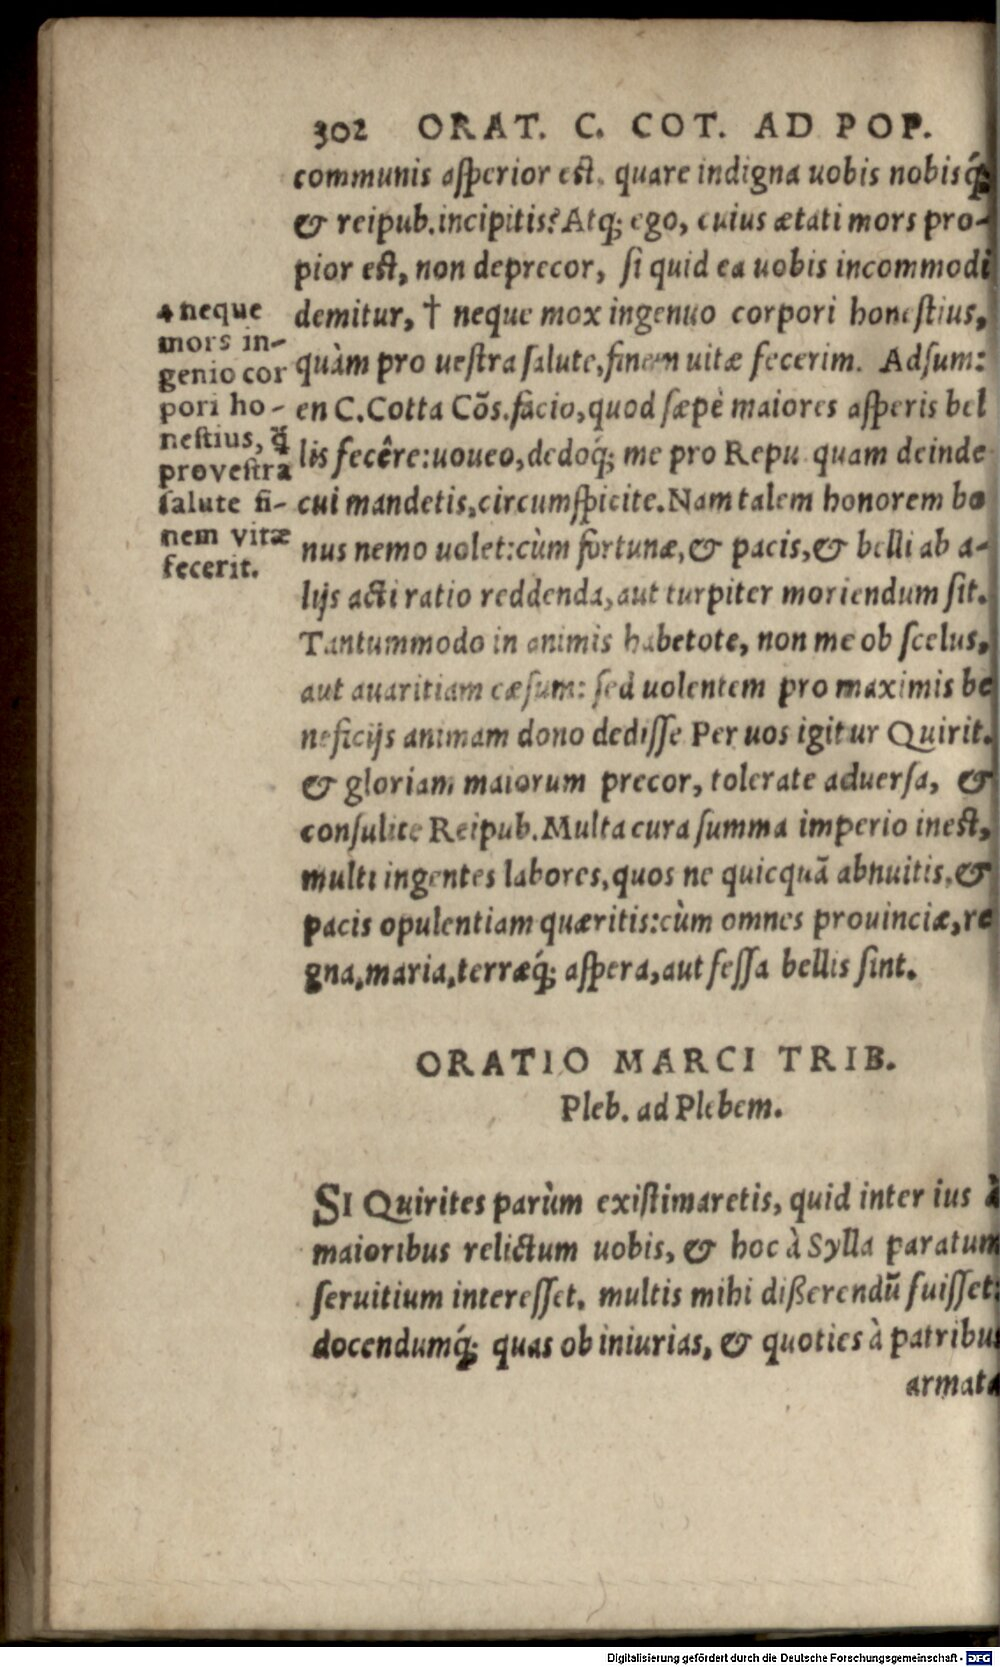 302 ORAT. C. COT. AD POP.
communis asperior est. quare indigna uobis nobisq́;
& reipub. incipitis? Atq; ego, cuius ætati mors pro-
pior est, non deprecor, si quid ea uobis incommodi
demitur, † neque mox ingenuo corpori honestius,
quàm pro uestra salute, finem uitæ fecerim. Adsum:
en C. Cotta Cõs. facio, quod sæpè maiores asperis bel
lis fecêre: uoueo, dedoq́; me pro Repu quam deinde
cui mandetis, circumspicite. Nam talem honorem bo
nus nemo uolet: cùm fortunæ, & pacis, & belli ab a-
lijs acti ratio reddenda, aut turpiter moriendum sit.
Tantummodo in animis habetote, non me ob scelus,
aut auaritiam cæsum: sed uolentem pro maximis be
neficijs animam dono dedisse Per uos igitur Quirit.
& gloriam maiorum precor, tolerate aduersa, &
consulite Reipub. Multa cura summa imperio inest,
multi ingentes labores, quos ne quicquã abnuitis, &
pacis opulentiam quæritis: cùm omnes prouinciæ, re
gna, maria, terræq́; aspera, aut fessa bellis sint.
4 neque
mors in-
genio cor
pori ho-
nestius, q̃
pro vestra
salute fi-
nem vitæ
fecerit.
ORATIO MARCI TRIB.
Pleb. ad Plebem.
SI Quirites parùm existimaretis, quid inter ius à
maioribus relictum uobis, & hoc à Sylla paratum
seruitium interesset, multis mihi dißerendũ fuisset:
docendumq́; quas ob iniurias, & quoties à patribus
armata
Digitalisierung gefördert durch die Deutsche Forschungsgemeinschaft - DFG